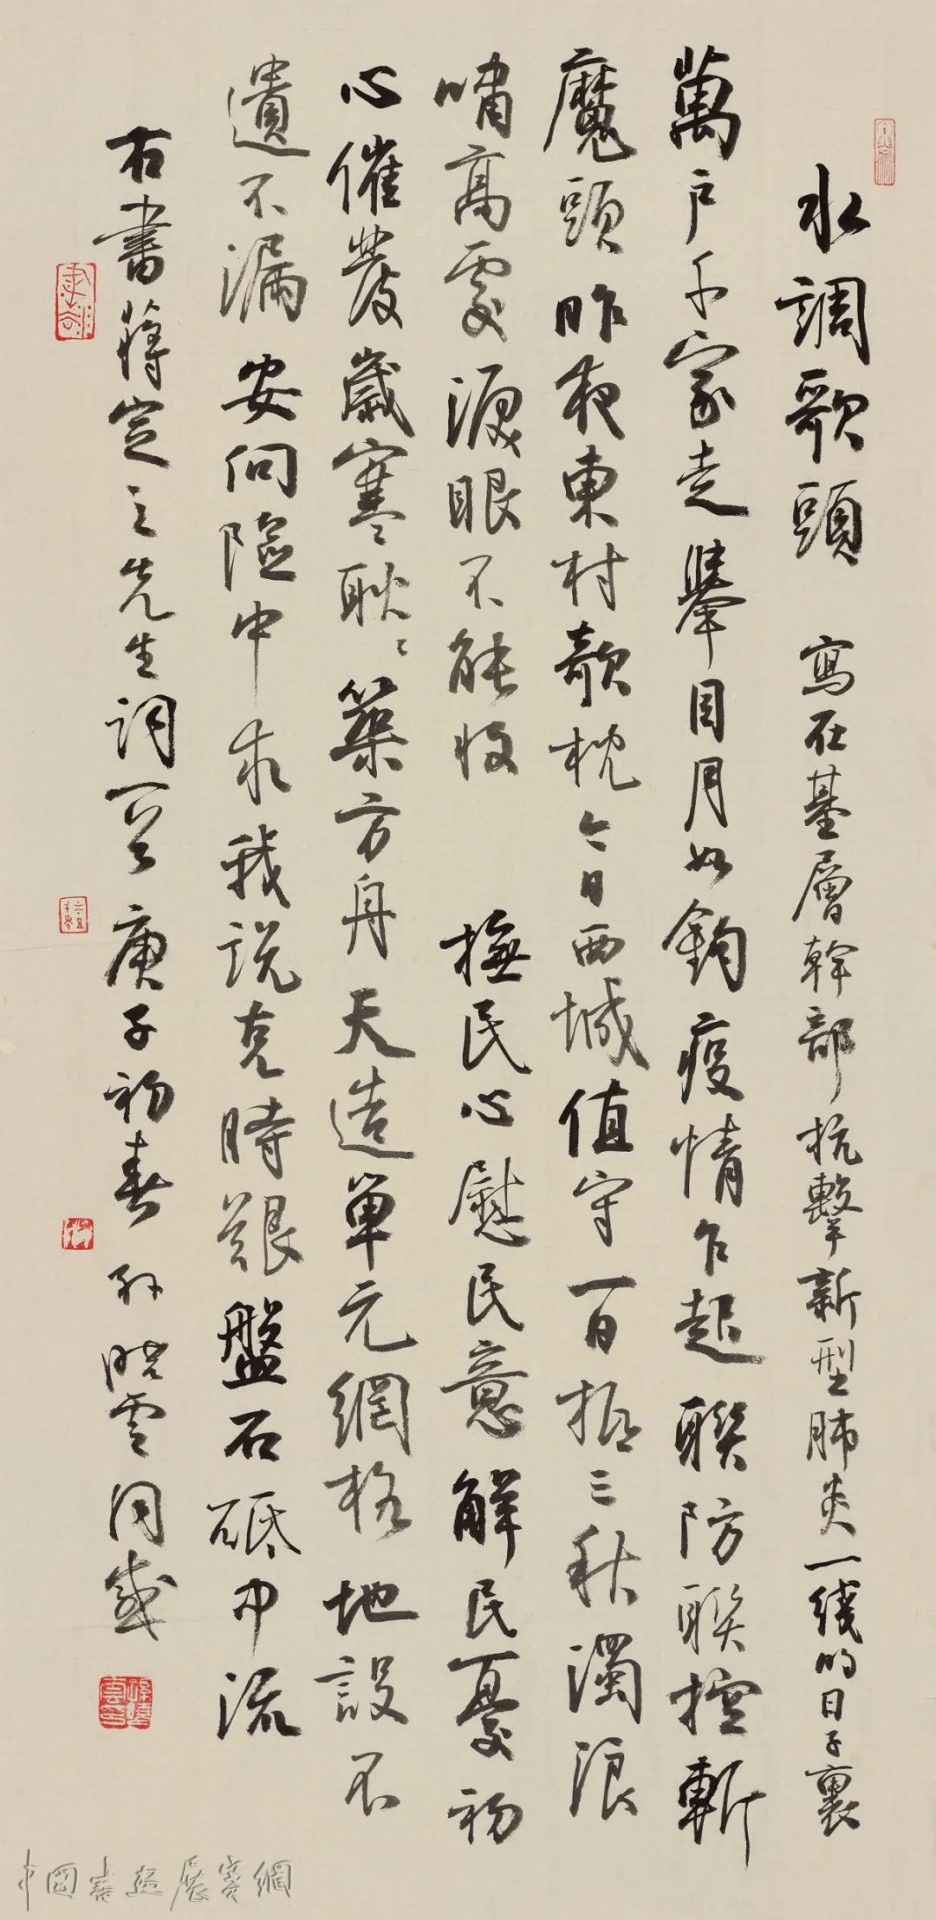 水調歌頭 寫在基層幹部抗擊新型肺炎一线的日子裏
萬戶千家走舉目月如鈎疫情乍起聯防聯控斬
魔頭昨夜東村欹枕今日西城值守一日抵三秋濁浪
嘯高處淚眼不能收 撫民心慰民意解民憂初
心催發歲寒耿〻築方舟天造單元網格地設不
遺不漏安向險中求我說克時艱盤石砥中流
右書蔣定之先生詞一首庚子初春孫曉雲同感
中國書法展賽網